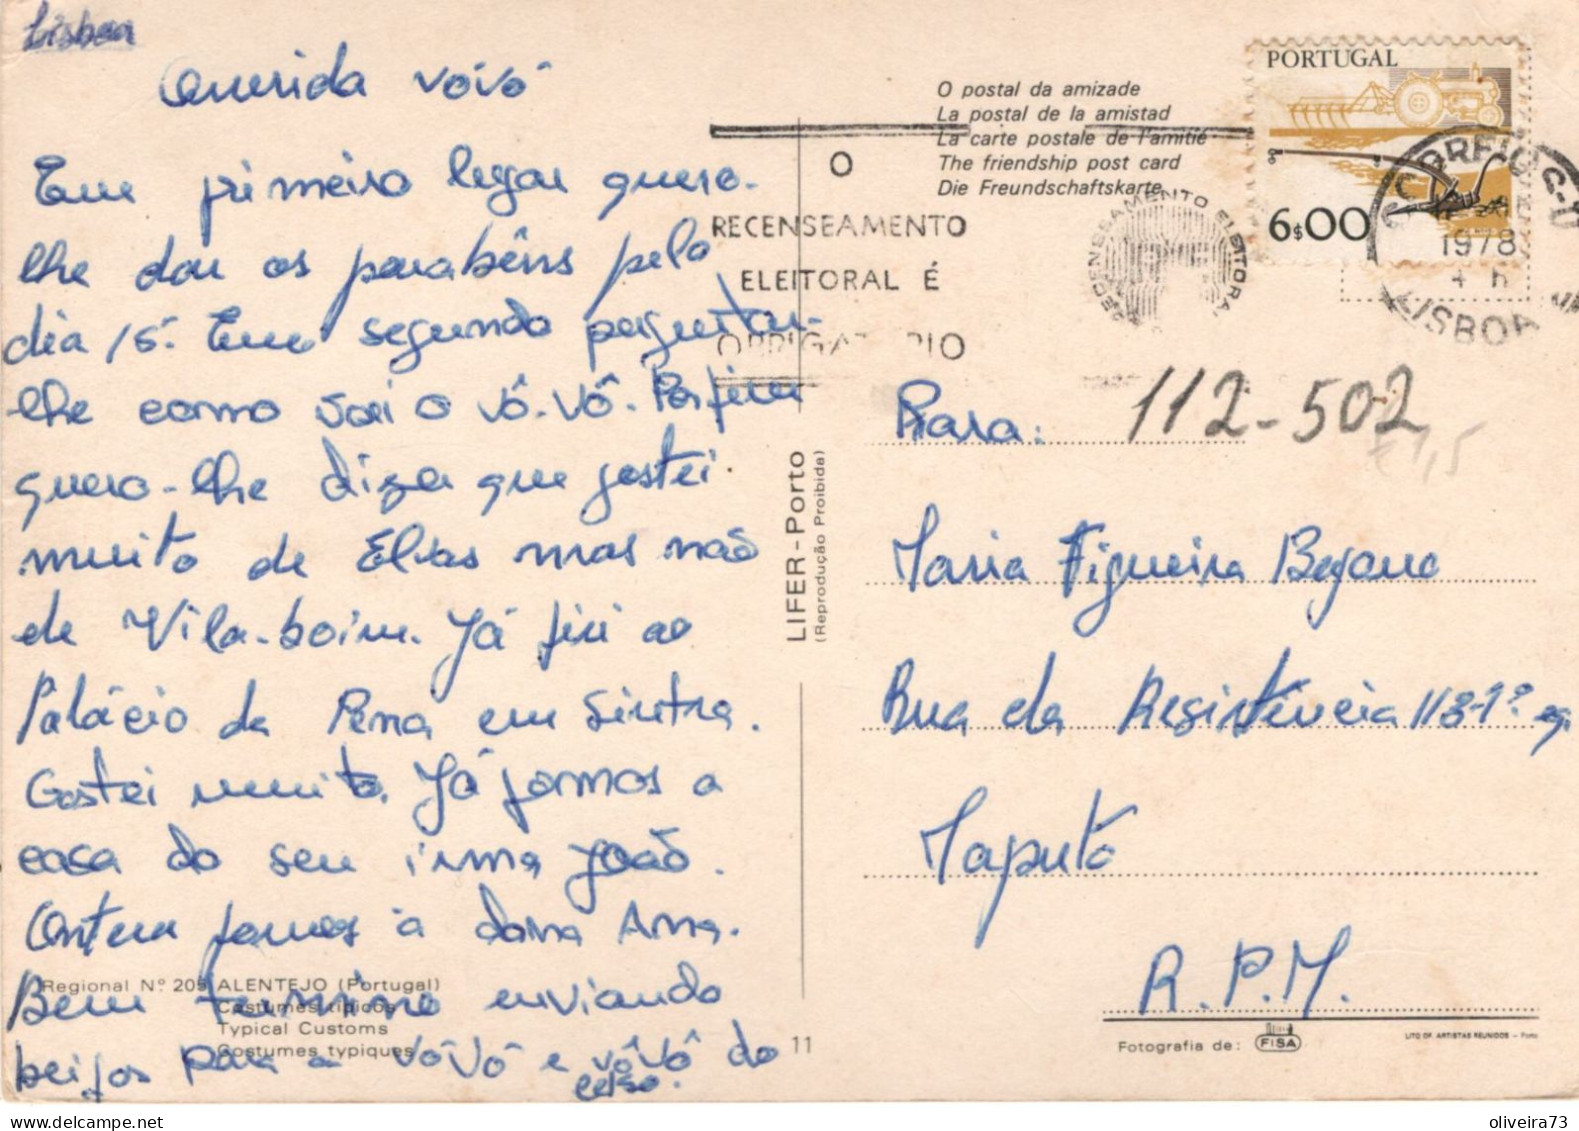 Lisboa
Querida vóvó
Em primeiro lugar quero-
lhe dar os parabêns pelo
dia 15. Em segundo perguntar-
lhe como vai o vô-vô. Por fim
quero-lhe dizer que gostei
muito de Elvas mas não
de Vila-boim. Já fui ao
Palácio da Pena em Sintra.
Gostei muito. Já fomos a
casa do seu irmã João.
Ontem fomos á dona Ana.
Bem termino enviando
beijos para a vóvó e vôvô do
celso.
Regional Nº 205 ALENTEJO (Portugal)
Costumes típicos
Typical Customs
Costumes typiques
11
LIFER-Porto
(Reprodução Proibida)
O postal da amizade
La postal de la amistad
La carte postale de l'amitié
The friendship post card
Die Freundschaftskarte
O
RECENSEAMENTO
ELEITORAL É
OBRIGATÓRIO
RECENSEAMENTO ELEITORAL
PORTUGAL
6$00
CORREIO
1978
4 h
LISBOA
Para: 112-502
€1,5
Maria Figueira Begano
Rua da Resistência 118-1º eq.
Maputo
R.P.M.
Fotografia de: FISA
LITO OF. ARTISTAS REUNIDOS - Porto
oliveira73